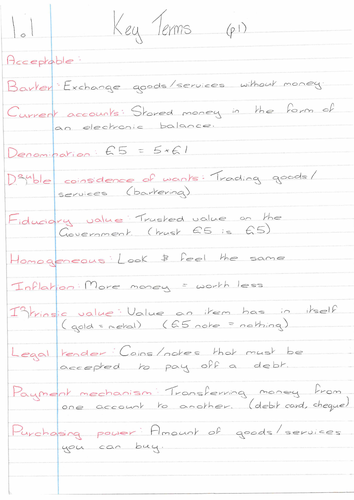 1.1 Key Terms (p1)
Acceptable:
Barter: Exchange goods/services without money.
Current accounts: Stored money in the form of
an electronic balance.
Denomination: £5 = 5*£1
Double coinsidence of wants: Trading goods/
services (bartering)
Fiduciary value: Trusted value on the
Government (trust £5 is £5)
Homogeneous: Look & feel the same
Inflation: More money = worth less
Intrinsic value: Value an item has in itself
(gold = metal) (£5 note = nothing)
Legal tender: Coins/notes that must be
accepted to pay off a debt.
Payment mechanism: Transferring money from
one account to another. (debit card, cheque)
Purchasing power: Amount of goods/services
you can buy.